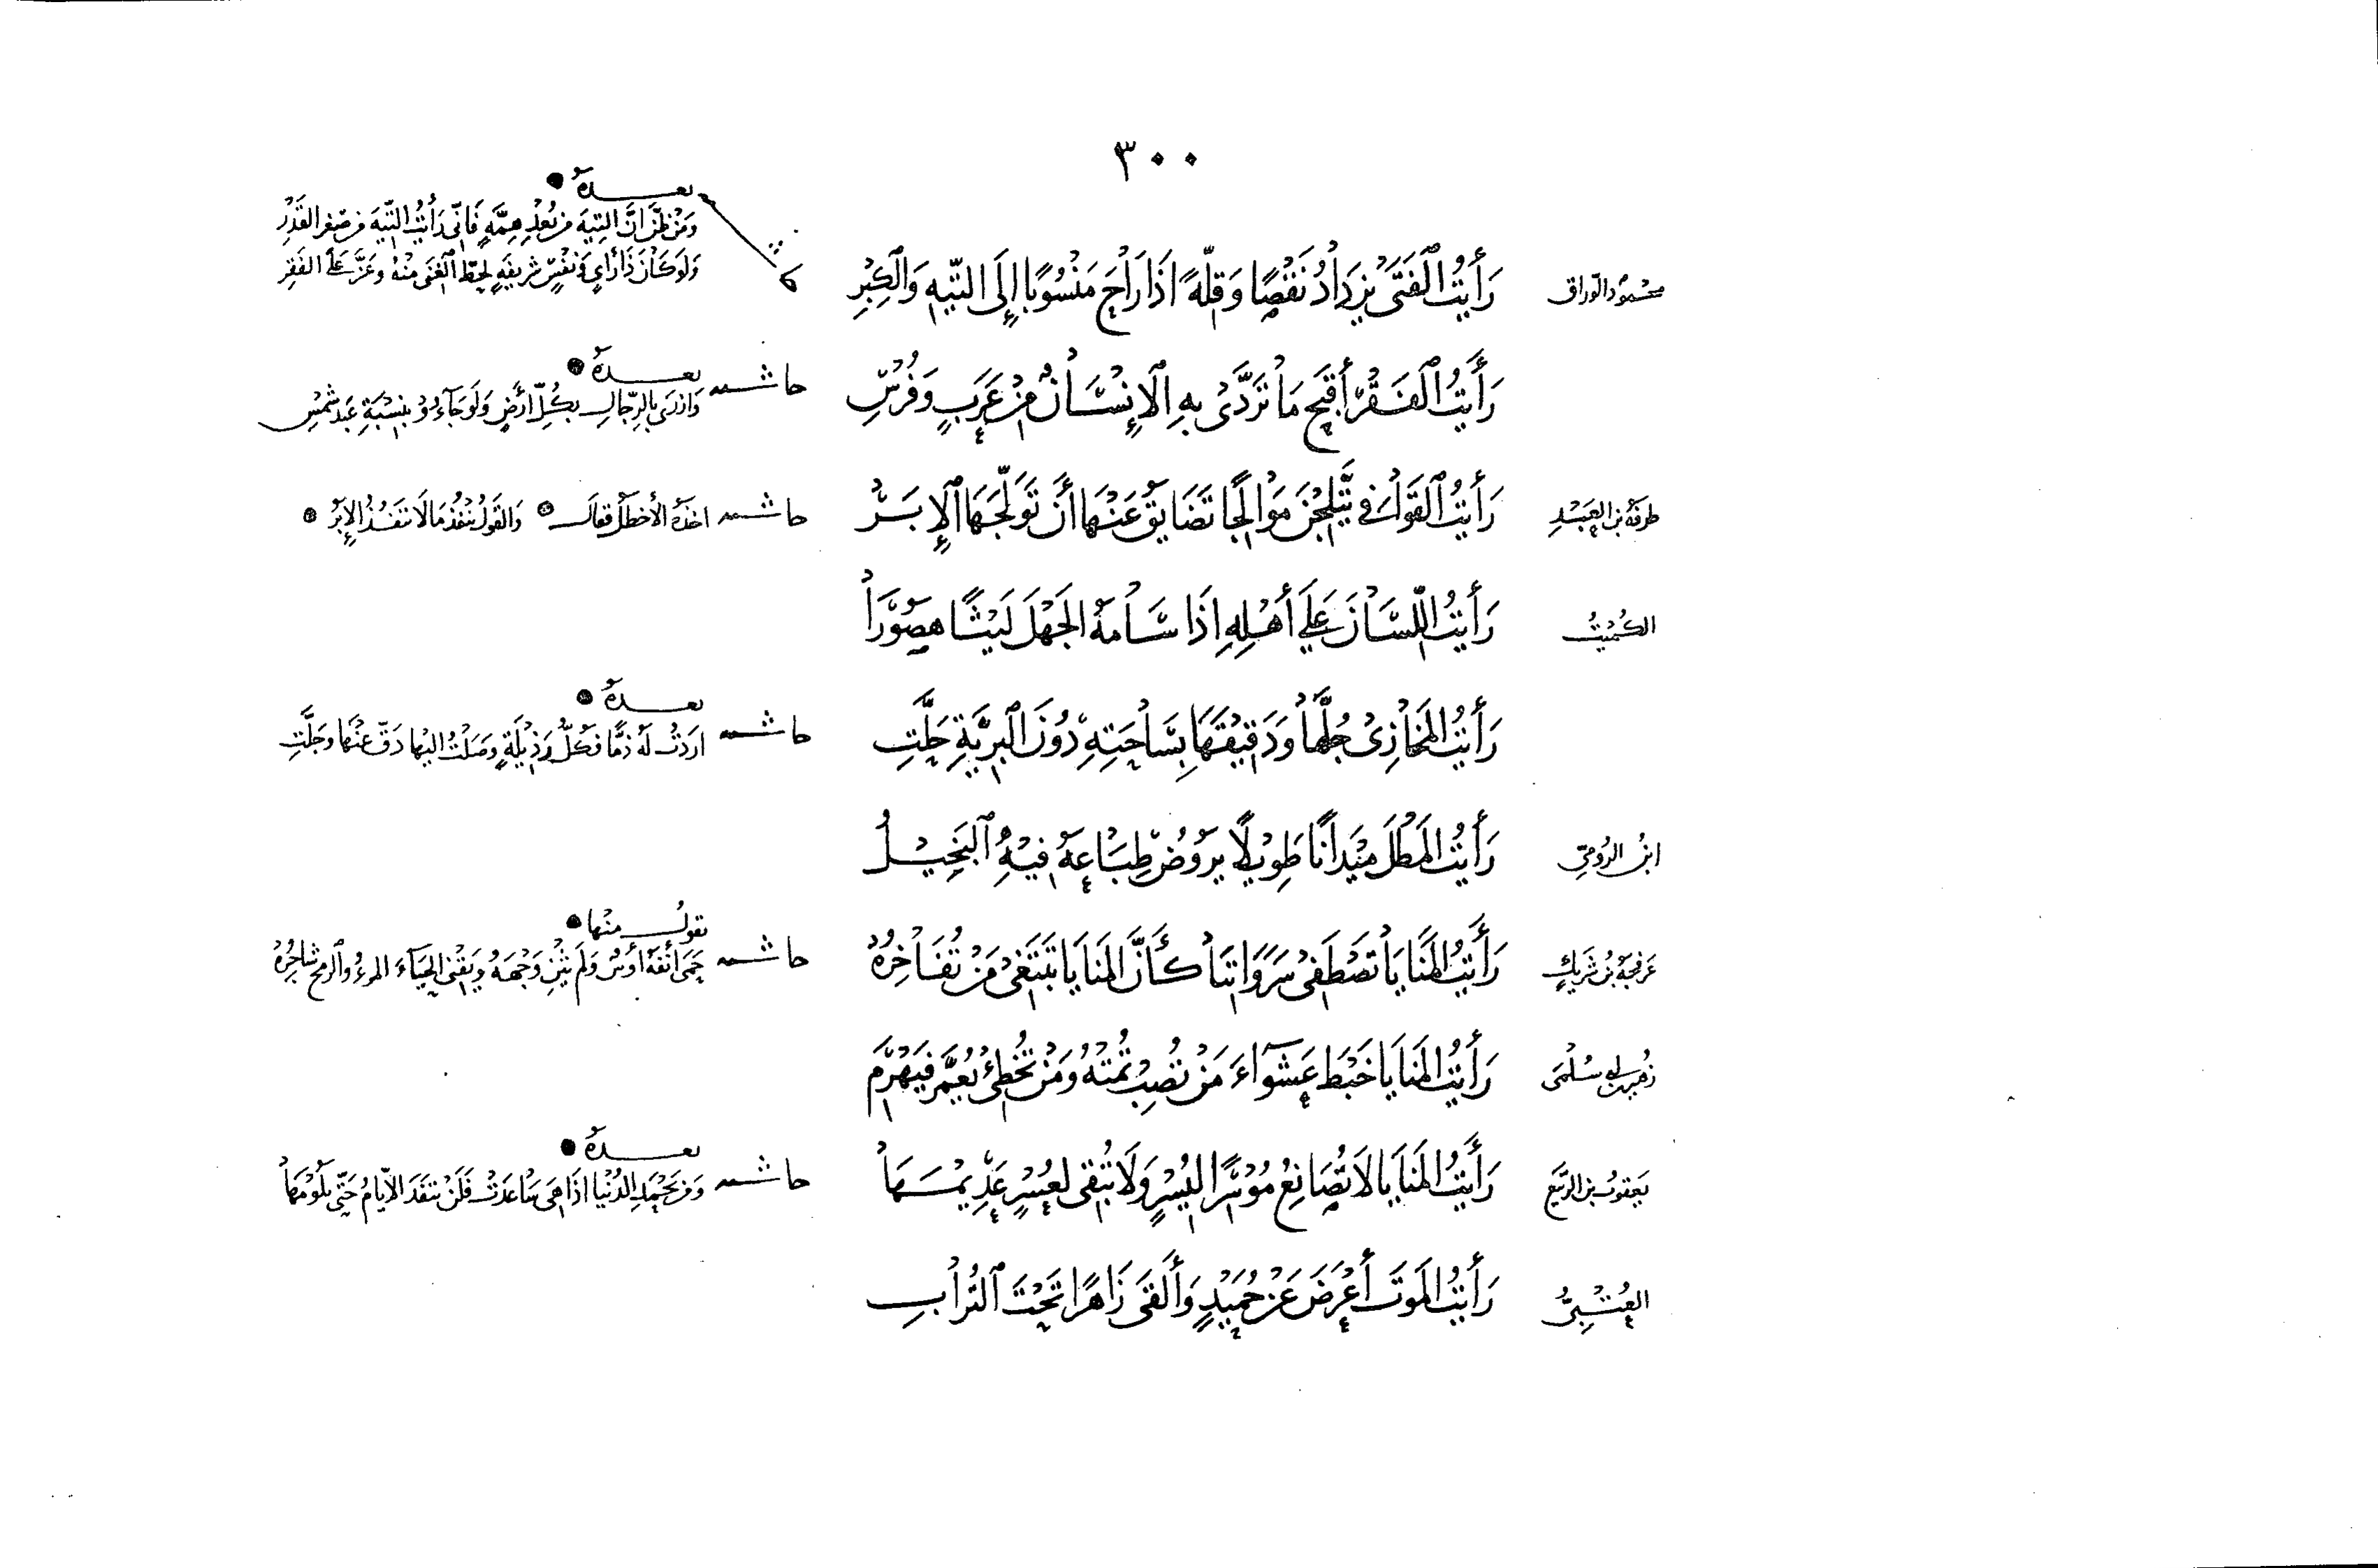 ٣٠٠
محمود الوراق
رَأَيْتُ الْفَتَى يَزْدَادُ نَقْصًا وَقِلَّةً اذَا رَاحَ مَنْسُوبًا إِلَى التِّيهِ وَالْكِبْرِ
بعده
وَمَنْ ظَنَّ انَّ التِّيهَ مِنْ بُعْدِ هِمَّةٍ فَانِّى رَأَيْتُ التِّيهَ مِنْ صِغَرِ الْقَدْرِ
وَلَوْ كَانَ ذَا رَأيٍ وَنَفْسٍ شَرِيفَةٍ لَحَطَّ الْغِنَى مِنْهُ وَعَزَّ عَلَى الفَقْرِ
رَأَيْتُ الْفَقْرَ أَقْبَحَ مَا تَرَدَّى بِهِ الْإِنْسَانُ مِنْ عَرَبٍ وَفُرْسِ
حاشية بعده
وَازْرَى بِالرِّجَالِ بِكُلِّ أَرْضٍ وَلَوْ جَآءُوْ بِنِسْبَةِ عَبْدِ شَمْسِ
طرفة بن العبد
رَأَيْتُ الْقَوَافي يَتَّلِجْنَ مَوَالِجًا تَضَايَقُ عَنْهَا أَنْ تَوَلَّجَهَا الْإِبَرْ
حاشية اخذه الأخطل فقال وَالقَوْلُ يَنْفُذُ مَا لَا تَنْفُذُ الإِبَرُ
الكُمَيْتُ
رَأَيْتُ اللِّسَانَ عَلَى أَهْلِهِ اذَا سَاسَهُ الْجَهْلُ لَيْثًا هَصُوْرَا
رَأَيْتُ الْمَخَازِىْ جُلَّهَا وَدَقِيْقَهَا بِسَاحَتِهِ دُوْنَ الْبَرِيَّةِ حَلَّتِ
حاشية بعده
ارَدْتُ لَهُ ذَمًّا فَكُلُّ رَذِيْلَةٍ وَصَلْتُ اليْهَا دَقَّ عَنْهَا وجَلَّتِ
ابن الرومى
رَأَيْتُ الْمَطْلَ مَيْدَانًا طَوِيْلًا يَرُوْضُ طِبَاعَهُ فِيْهِ الْبَخِيْلُ
عرفجة بن شريك
رَأَيْتُ الْمَنَايَا تَصْطَفِى سَرَوَاتِنَا كَأَنَّ الْمَنَايَا تَبْتَغِى مَنْ تُفَاخِرُهْ
حاشية يقول منها
حَمَى أَنْفَهُ أَوْسٌ وَلَمْ يَثْنِ وَجْهَهُ وَيَقْنَى الْحَيَآءَ المرءُ وَالرمحُ شَاجِرُهْ
زهير بن ابى سُلْمَى
رَأَيْتُ الْمَنَايَا خَبْطَ عَشْوَآءَ مَنْ تُصِبْ تُمِتْهُ وَمَنْ تُخْطِئْ يُعَمَّرْ فَيَهْرَمِ
يعقوب بن الربيع
رَأَيْتُ الْمَنَايَا لَا تُصَانِعُ مُوْسِرًا لِيُسْرٍ وَلَا تُبْقِى لِعُسْرٍ عَدِيْمَهَا
حاشية بعده
وَمَنْ يَحْمَدِ الدُّنْيَا اذَا هِىَ سَاعَدَتْ فَلَنْ تَنْفَدَ الأَيَّامُ حَتَّى يَلُوْمَهَا
العُتْبِىُّ
رَأَيْتُ الْمَوْتَ أَعْرَضَ عَنْ حُمَيْدٍ وَأَلْقَى زَاهِرًا تَحْتَ التُّرَابِ